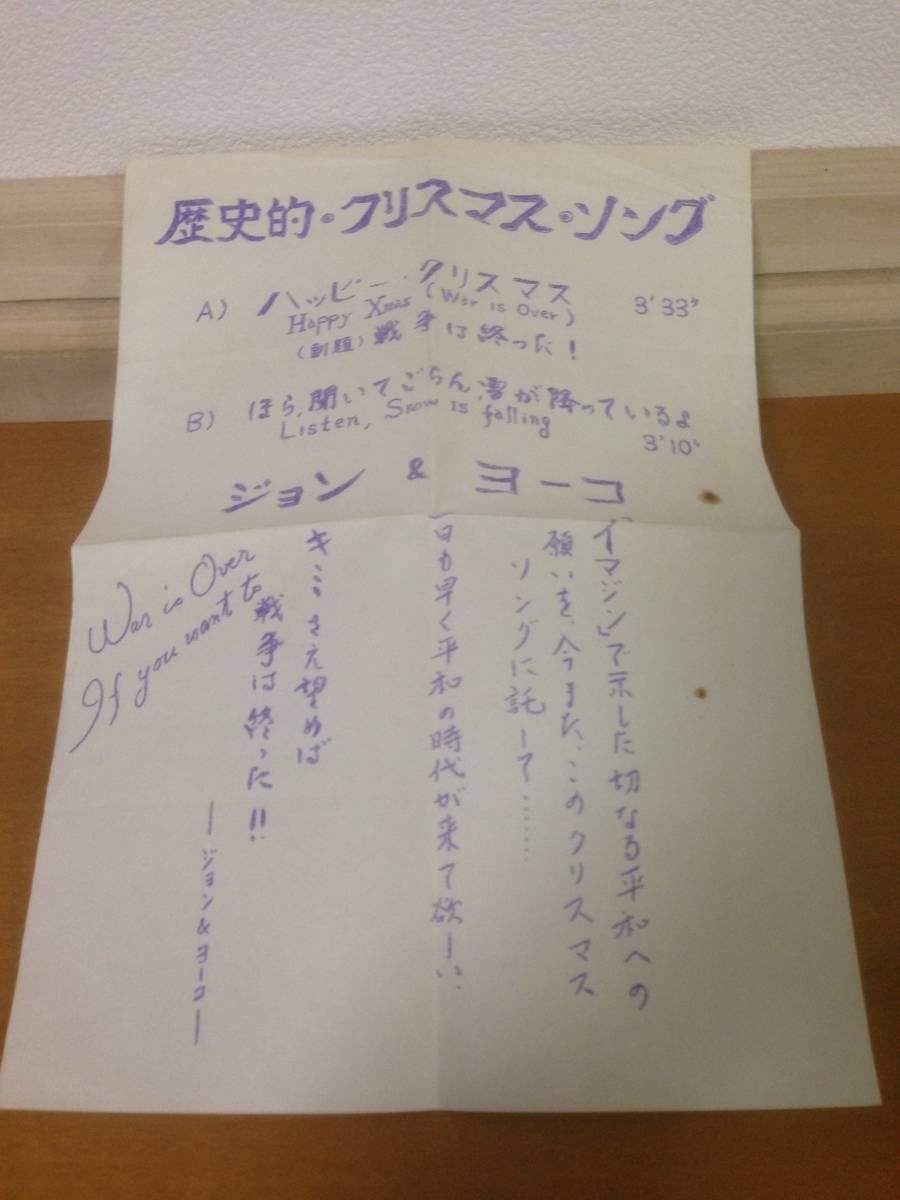 歴史的・クリスマス・ソング
A) ハッピー・クリスマス 3'33"
Happy Xmas (War is Over)
(副題) 戦争は終った!
B) ほら、聞いてごらん、雪が降っているよ
Listen, Snow is falling 3'10"
ジョン & ヨーコ
「イマジン」で示した切なる平和への
願いを、今また、このクリスマス
ソングに託して………
一日も早く平和の時代が来て欲しい、
キミさえ望めば
戦争は終った!!
—ジョン&ヨーコ—
War is Over
If you want to